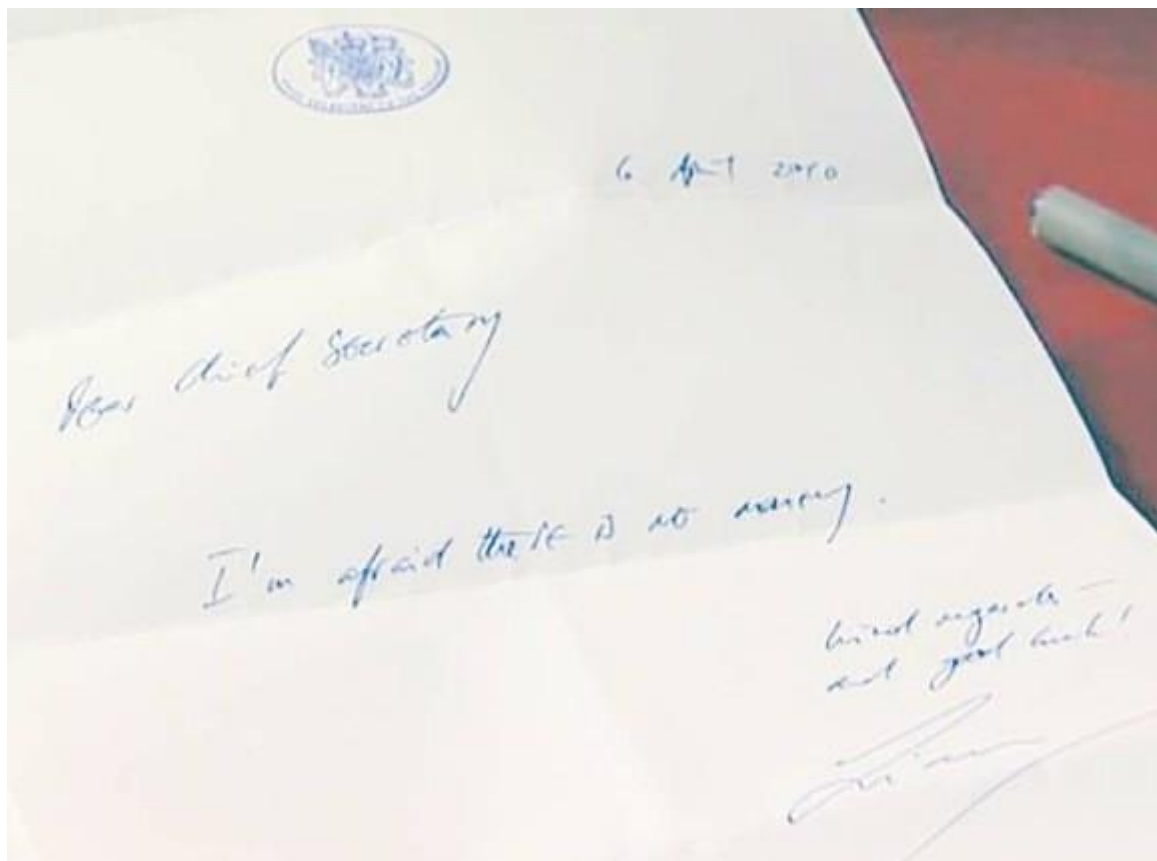 6 April 2010
Dear Chief Secretary
I'm afraid there is no money.
Kind regards –
and good luck!
Liam